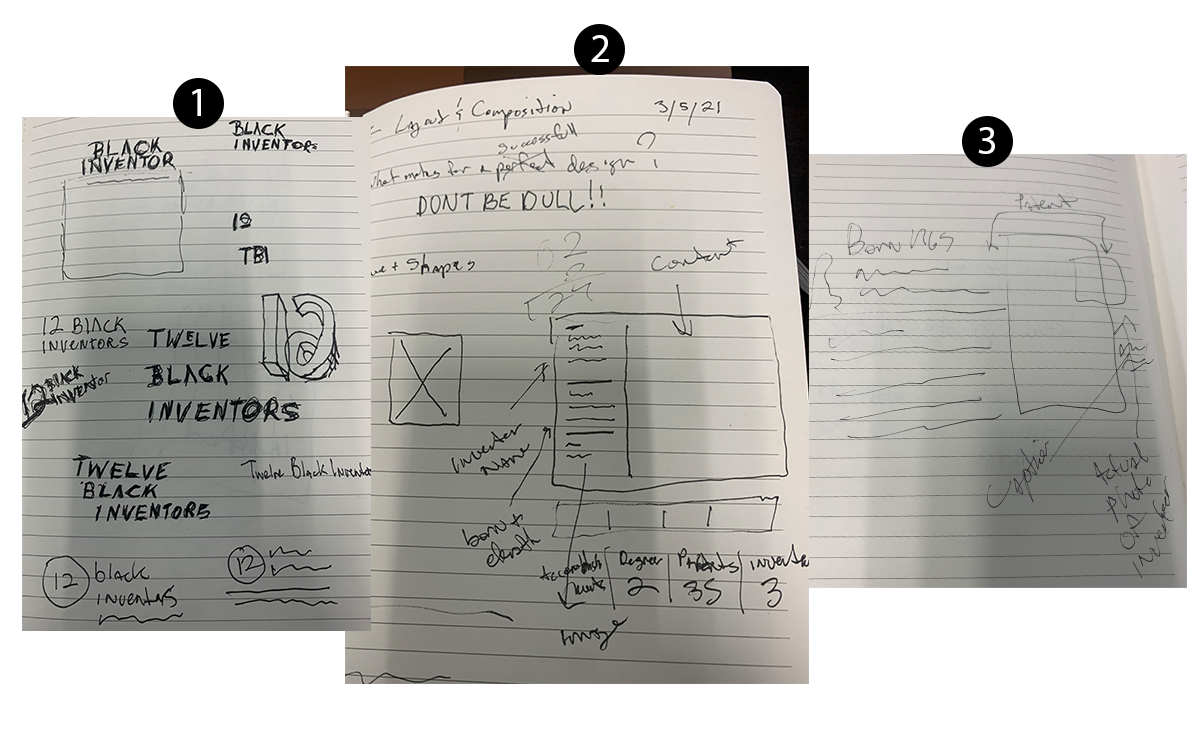 1
BLACK
INVENTORS
BLACK
INVENTOR
TBI
12 BLACK
INVENTORS
TWELVE
BLACK
INVENTORS
12 BLACK
INVENTOR
TWELVE
BLACK
INVENTORS
Twelve Black Inventor
12
black
inventors
12
2
Layout & Composition
3/5/21
successfull
What makes for a perfect design ?
DONT BE DULL!!
+ Shapes
2
Content
inventer
Name
born +
death
Accomplish
ments
Degree
2
Patents
35
invente
3
image
3
Patent
Born 1965
Caption
Actual
Photo
OR